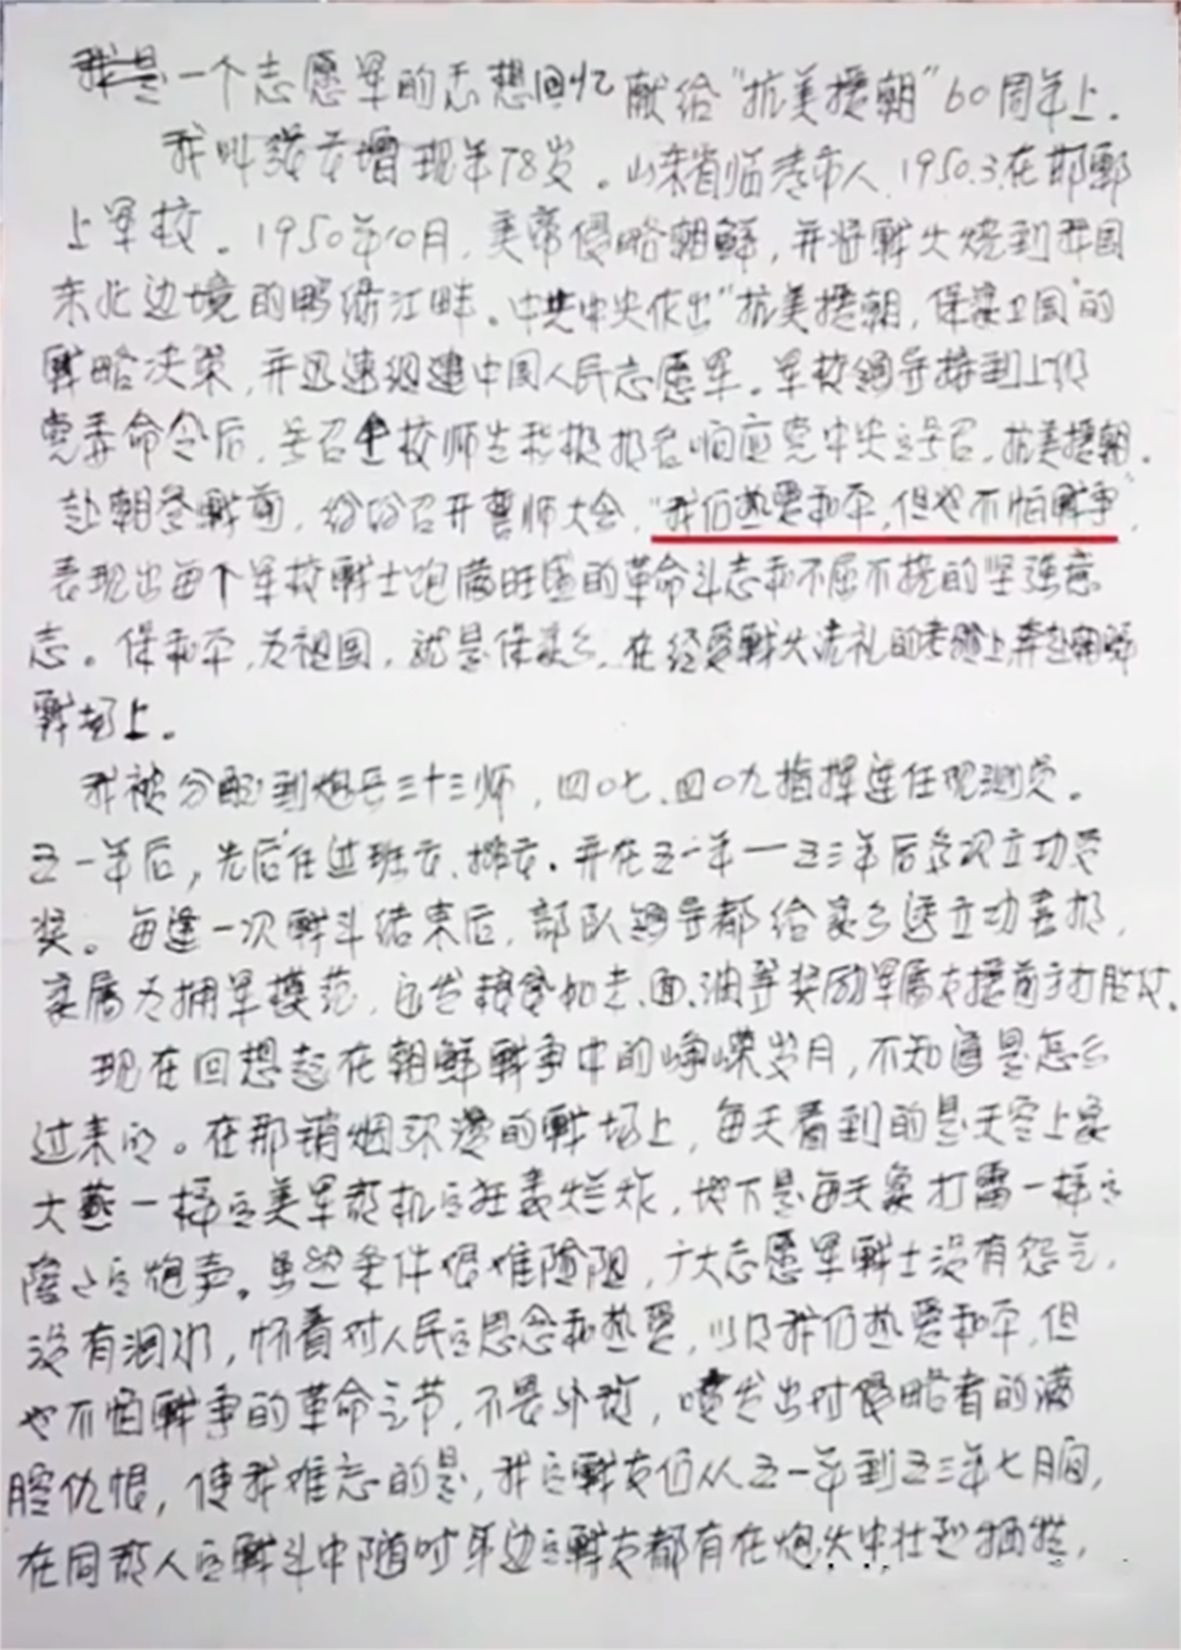 我是一个志愿军的思想回忆 献给"抗美援朝"60周年上.
我叫张云增现年78岁。山东省临清市人.1950.3.在邯郸
上军校。1950年10月,美帝侵略朝鲜,并将战火烧到我国
东北边境的鸭绿江畔。中共中央作出"抗美援朝,保家卫国"的
战略决策,并迅速组建中国人民志愿军。军校领导接到上级
党委命令后,号召全校师生积极报名响应党中央的号召,抗美援朝.
赴朝参战前,纷纷召开誓师大会,"我们热爱和平,但也不怕战争",
表现出每个军校战士饱满旺盛的革命斗志和不屈不挠的坚强意
志。保和平,为祖国,就是保家乡,在经受战火洗礼的考验上,奔赴朝鲜
战场上。
我被分配到炮兵三十三师,四〇七、四〇九指挥连任观测员。
五一年后,先后任过班长、排长.并在五一年一五三年后多次立功受
奖。每逢一次战斗结束后,部队领导都给家乡送立功喜报,
家属为拥军模范,还发粮食如大、面、油等奖励军属支援前方打胜仗.
现在回想起在朝鲜战争中的峥嵘岁月,不知道是怎么
过来的。在那销烟弥漫的战场上,每天看到的是天空上象
大燕一样的美军敌机的狂轰烂炸,地下是每天象打雷一样的
隆隆的炮声。虽然条件艰难险阻,广大志愿军战士没有怨言,
没有泪水,怀着对人民的思念和热爱,以及我们热爱和平,但
也不怕战争的革命气节,不畏外敌,喷发出对侵略者的满
腔仇恨,使我难忘的是,我的战友们从五一年到五三年七月间,
在同敌人的战斗中随时身边的战友都有在炮火中壮烈牺牲,